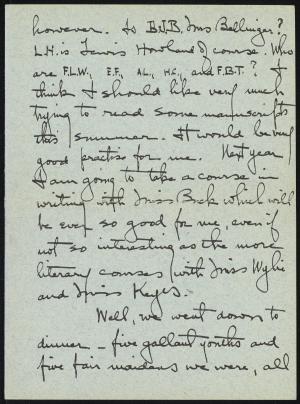 however. Is B.J.B. Miss Bellinger?
L.H. is Lewis Howland of course. Who
are F.L.W., E.F., A.L., H.C., and F.B.T.? I
think I should like very much
trying to read some manuscripts
this summer. It would be very
good practise for me. Next year
I am going to take a course in
writing with Miss Beck which will
be ever so good for me, even if
not so interesting as the more
literary courses with Miss Wylie
and Miss Keyes.
Well, we went down to
dinner – five gallant youths and
five fair maidens we were, all